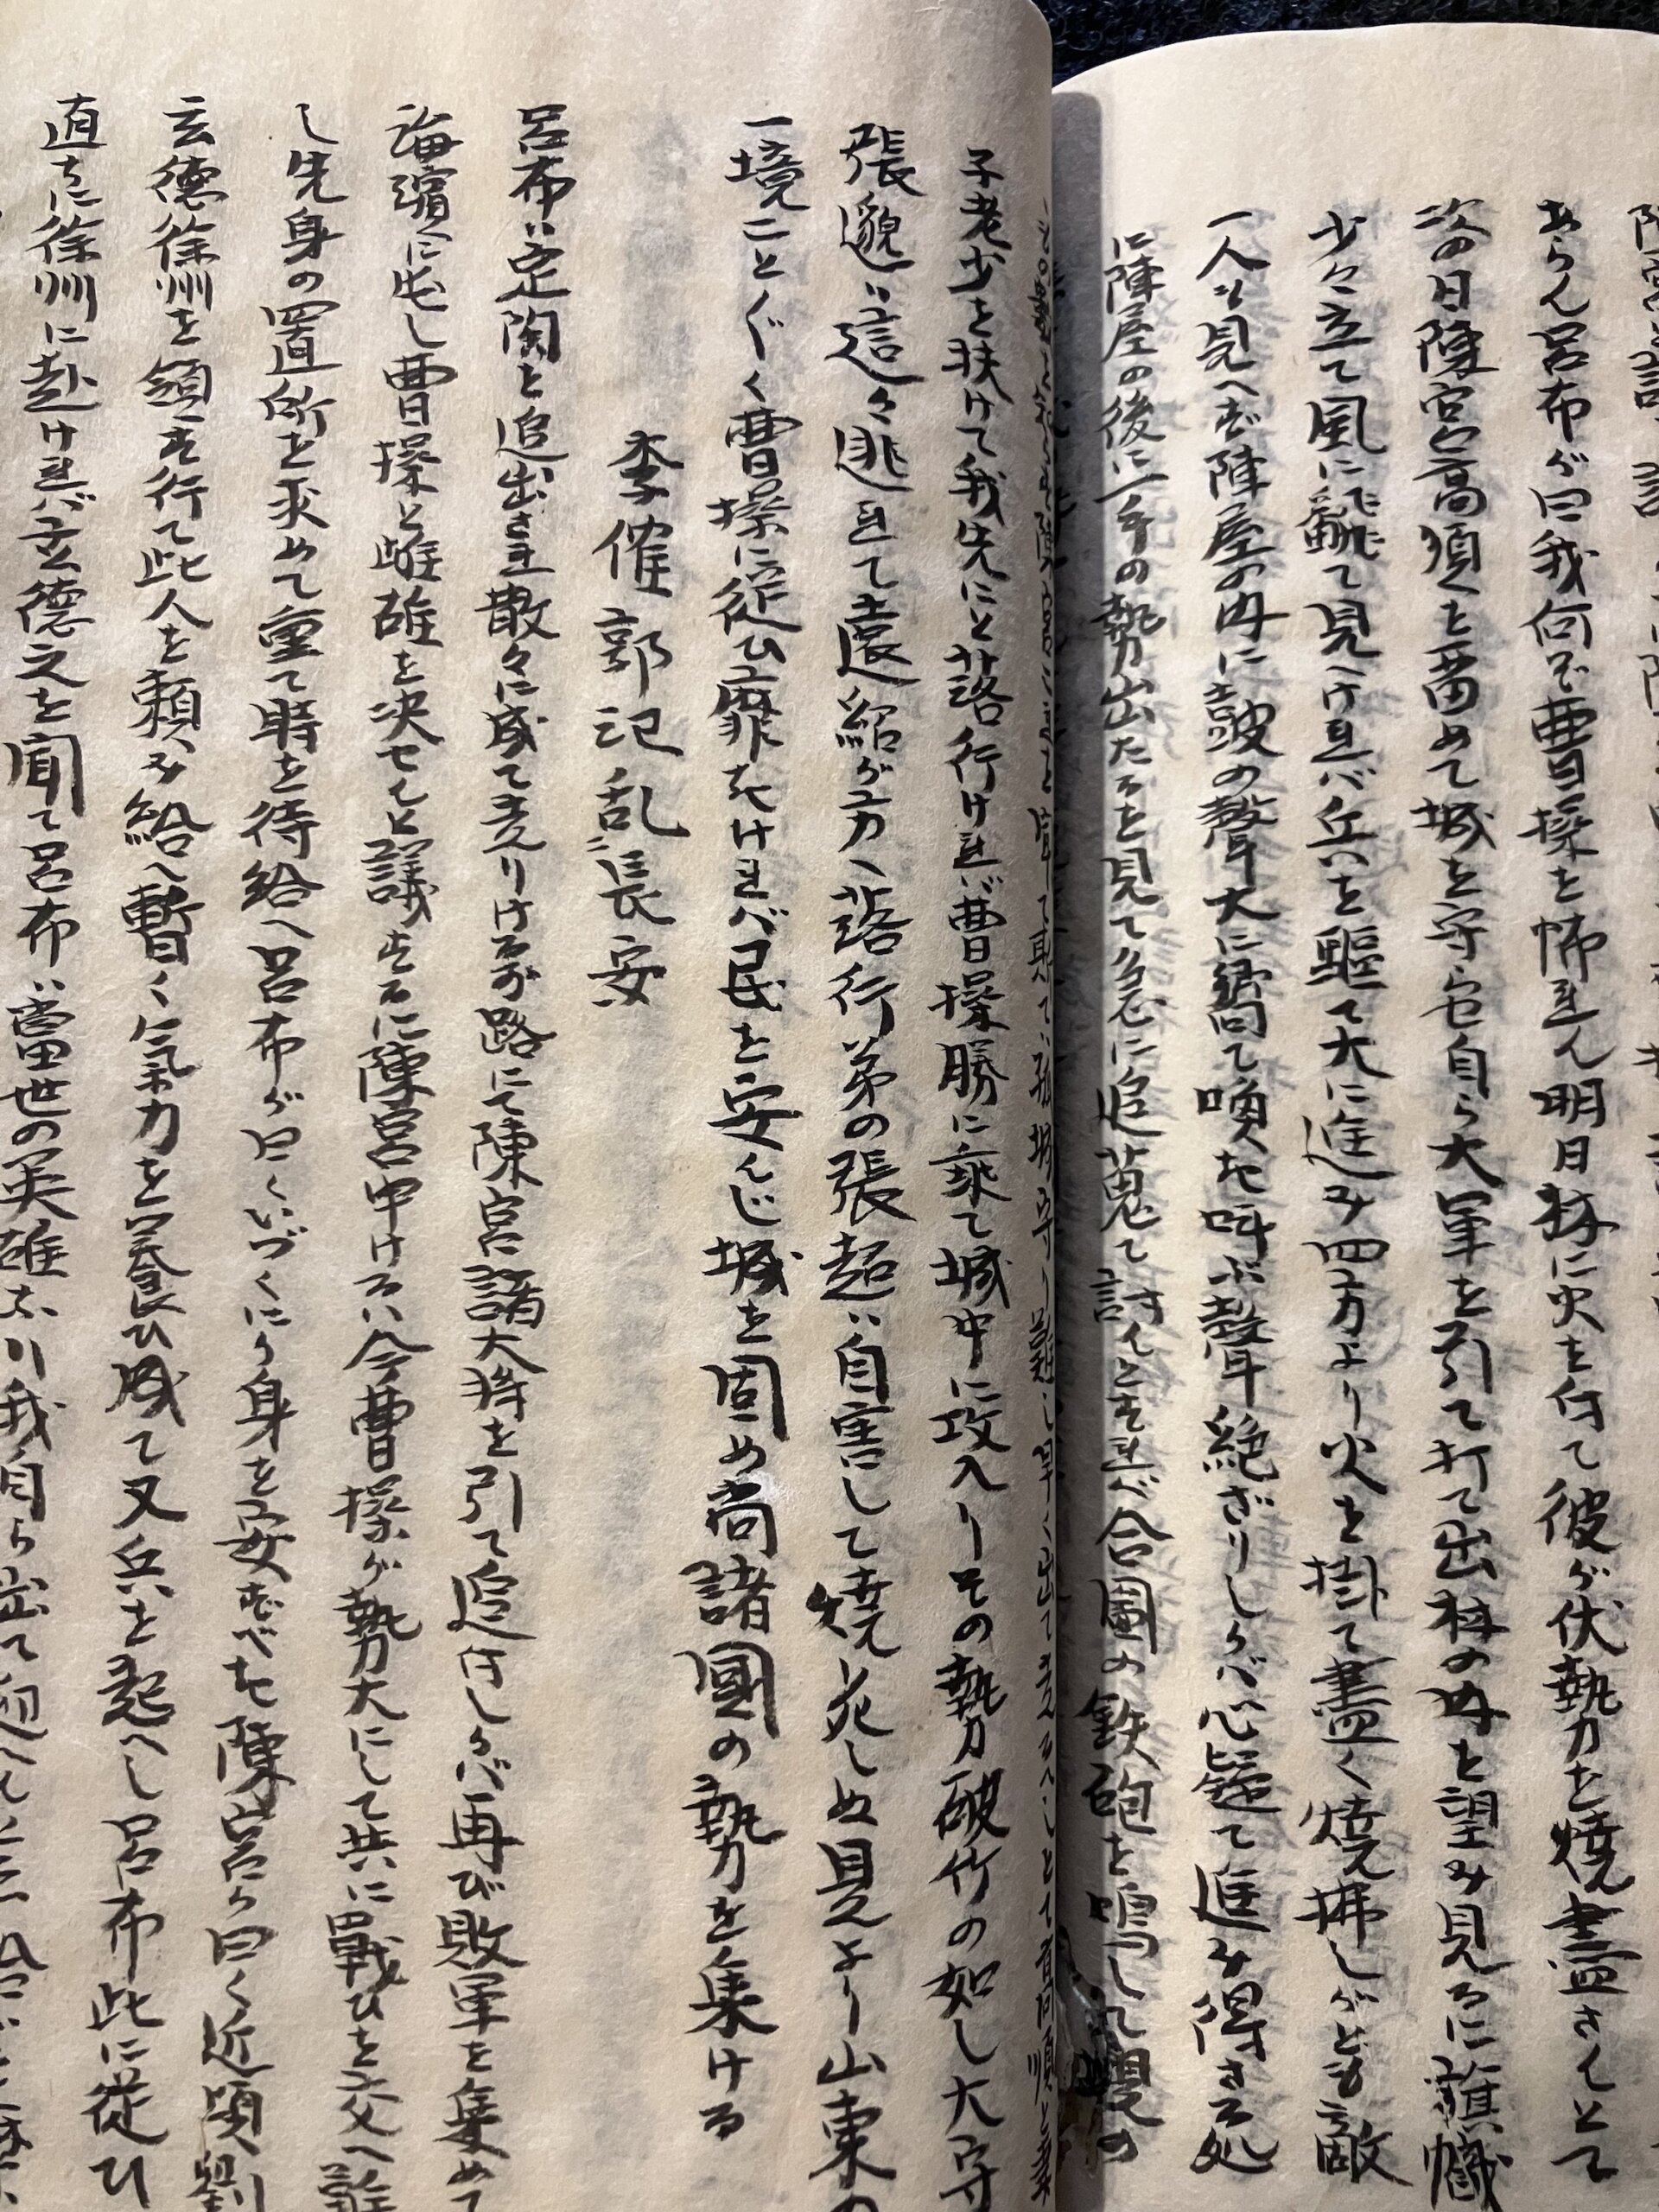 あらん呂布が曰我何ぞ曹操を怖れん明日林に火を付て彼が伏勢を焼盡さんとて
次の日陳宮高順を畄めて城を守らせ自ら大軍を引て打て出林の内を望み見るに旗幟
少々立て風に飜て見へければ兵を駈て大に進み四方より火を掛て盡く焼拂しかども敵
一人も見へず陣屋の内に鼓の聲大に響て喚き叫ぶ聲絶ざりしかば心疑て進み得ざる処
に陣屋の後に一手の勢山たるを見て急に追蒐て討んとすれば合圖の鉄砲を鳴し
子老少を扶けて我先にと落行ければ曹操勝に乘て城中に攻入りその勢破竹の如し大守
張邈は這々逃れて袁紹が方へ落行弟の張超は自害して焼死しぬ是より山東の
一境ことごとく曹操に従ひ靡きければ民を安んじ城を固め尚諸國の勢を集ける
李傕郭汜乱長安
呂布は定陶を追出され散々に成て走りけるが路にて陳宮諸大将を引て追付しかば再び敗軍を集めて
海濵に屯し曹操と雌雄を決せんと議するに陳宮申けるは今曹操が勢大にして共に戰ひを交へ難
し先身の置所を求めて重て時を待給へ呂布が曰くいづくにか身を安ずべき陳宮が曰く近頃劉
玄徳徐州を領す行て此人を頼み給へ暫く氣力を養ひ成て又兵を起べし呂布此に従ひ
直ちに徐州に赴ければ玄徳之を聞て呂布は當世の英雄なり我自ら出て迎へん